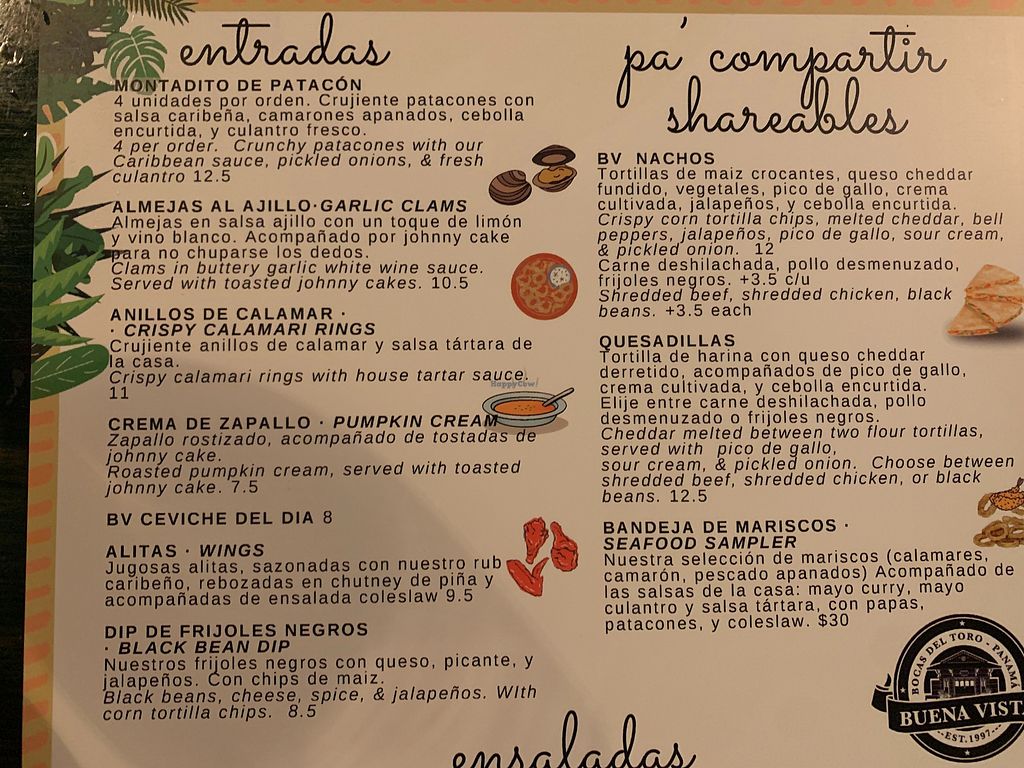 entradas
MONTADITO DE PATACÓN
4 unidades por orden. Crujiente patacones con
salsa caribeña, camarones apanados, cebolla
encurtida, y culantro fresco.
4 per order. Crunchy patacones with our
Caribbean sauce, pickled onions, & fresh
culantro 12.5
ALMEJAS AL AJILLO·GARLIC CLAMS
Almejas en salsa ajillo con un toque de limón
y vino blanco. Acompañado por johnny cake
para no chuparse los dedos.
Clams in buttery garlic white wine sauce.
Served with toasted johnny cakes. 10.5
ANILLOS DE CALAMAR ·
· CRISPY CALAMARI RINGS
Crujiente anillos de calamar y salsa tártara de
la casa.
Crispy calamari rings with house tartar sauce.
11
HappyCow!
CREMA DE ZAPALLO · PUMPKIN CREAM
Zapallo rostizado, acompañado de tostadas de
johnny cake.
Roasted pumpkin cream, served with toasted
johnny cake. 7.5
BV CEVICHE DEL DIA 8
ALITAS · WINGS
Jugosas alitas, sazonadas con nuestro rub
caribeño, rebozadas en chutney de piña y
acompañadas de ensalada coleslaw 9.5
DIP DE FRIJOLES NEGROS
· BLACK BEAN DIP
Nuestros frijoles negros con queso, picante, y
jalapeños. Con chips de maiz.
Black beans, cheese, spice, & jalapeños. WIth
corn tortilla chips. 8.5
pa' compartir
shareables
BV NACHOS
Tortillas de maiz crocantes, queso cheddar
fundido, vegetales, pico de gallo, crema
cultivada, jalapeños, y cebolla encurtida.
Crispy corn tortilla chips, melted cheddar, bell
peppers, jalapeños, pico de gallo, sour cream,
& pickled onion. 12
Carne deshilachada, pollo desmenuzado,
frijoles negros. +3.5 c/u
Shredded beef, shredded chicken, black
beans. +3.5 each
QUESADILLAS
Tortilla de harina con queso cheddar
derretido, acompañados de pico de gallo,
crema cultivada, y cebolla encurtida.
Elije entre carne deshilachada, pollo
desmenuzado o frijoles negros.
Cheddar melted between two flour tortillas,
served with pico de gallo,
sour cream, & pickled onion. Choose between
shredded beef, shredded chicken, or black
beans. 12.5
BANDEJA DE MARISCOS ·
SEAFOOD SAMPLER
Nuestra selección de mariscos (calamares,
camarón, pescado apanados) Acompañado de
las salsas de la casa: mayo curry, mayo
culantro y salsa tártara, con papas,
patacones, y coleslaw. $30
BOCAS DEL TORO - PANAMÁ
BUENA VIST
-EST.1997-
ensaladas